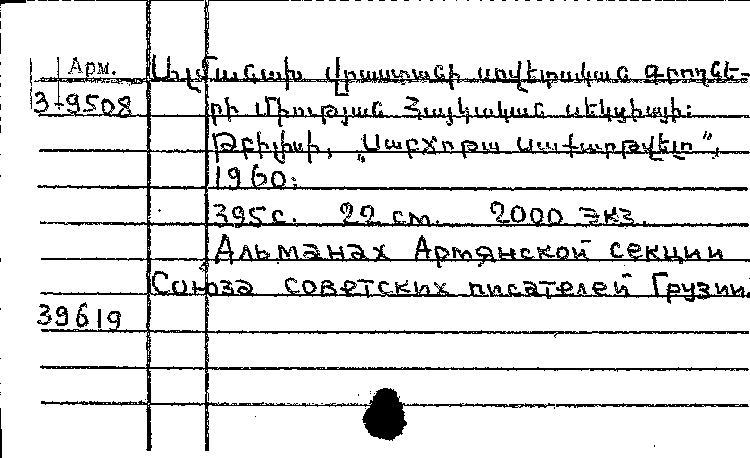 Арм.
Ալմանախ վրաստանի սովետական գրողնե-
3-9508
րի միության Հայկական սեկցիայի:
Թբիլիսի, „Սաբչոթա Սաքարթվելո",
1960:
395 с. 22 см. 2000 экз.
Альманах Армянской секции
Союза советских писателей Грузии.
39619